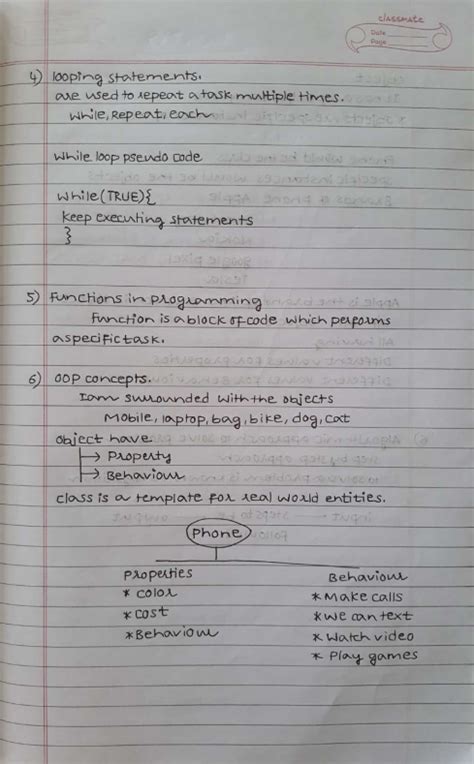 classmate
Date
Page
4) looping statements.
are used to repeat a task multiple times.
while, Repeat, each
while loop pseudo code
while(TRUE){
keep executing statements
}
5) Functions in programming
Function is a block of code which performs
a specific task.
6) OOP concepts.
I am surrounded with the objects
Mobile, laptop, bag, bike, dog, cat
object have
→ Property
→ Behaviour
class is a template for real world entities.
Phone
Properties
* color
* cost
* Behaviour
Behaviour
* Make calls
* we can text
* Watch video
* Play games